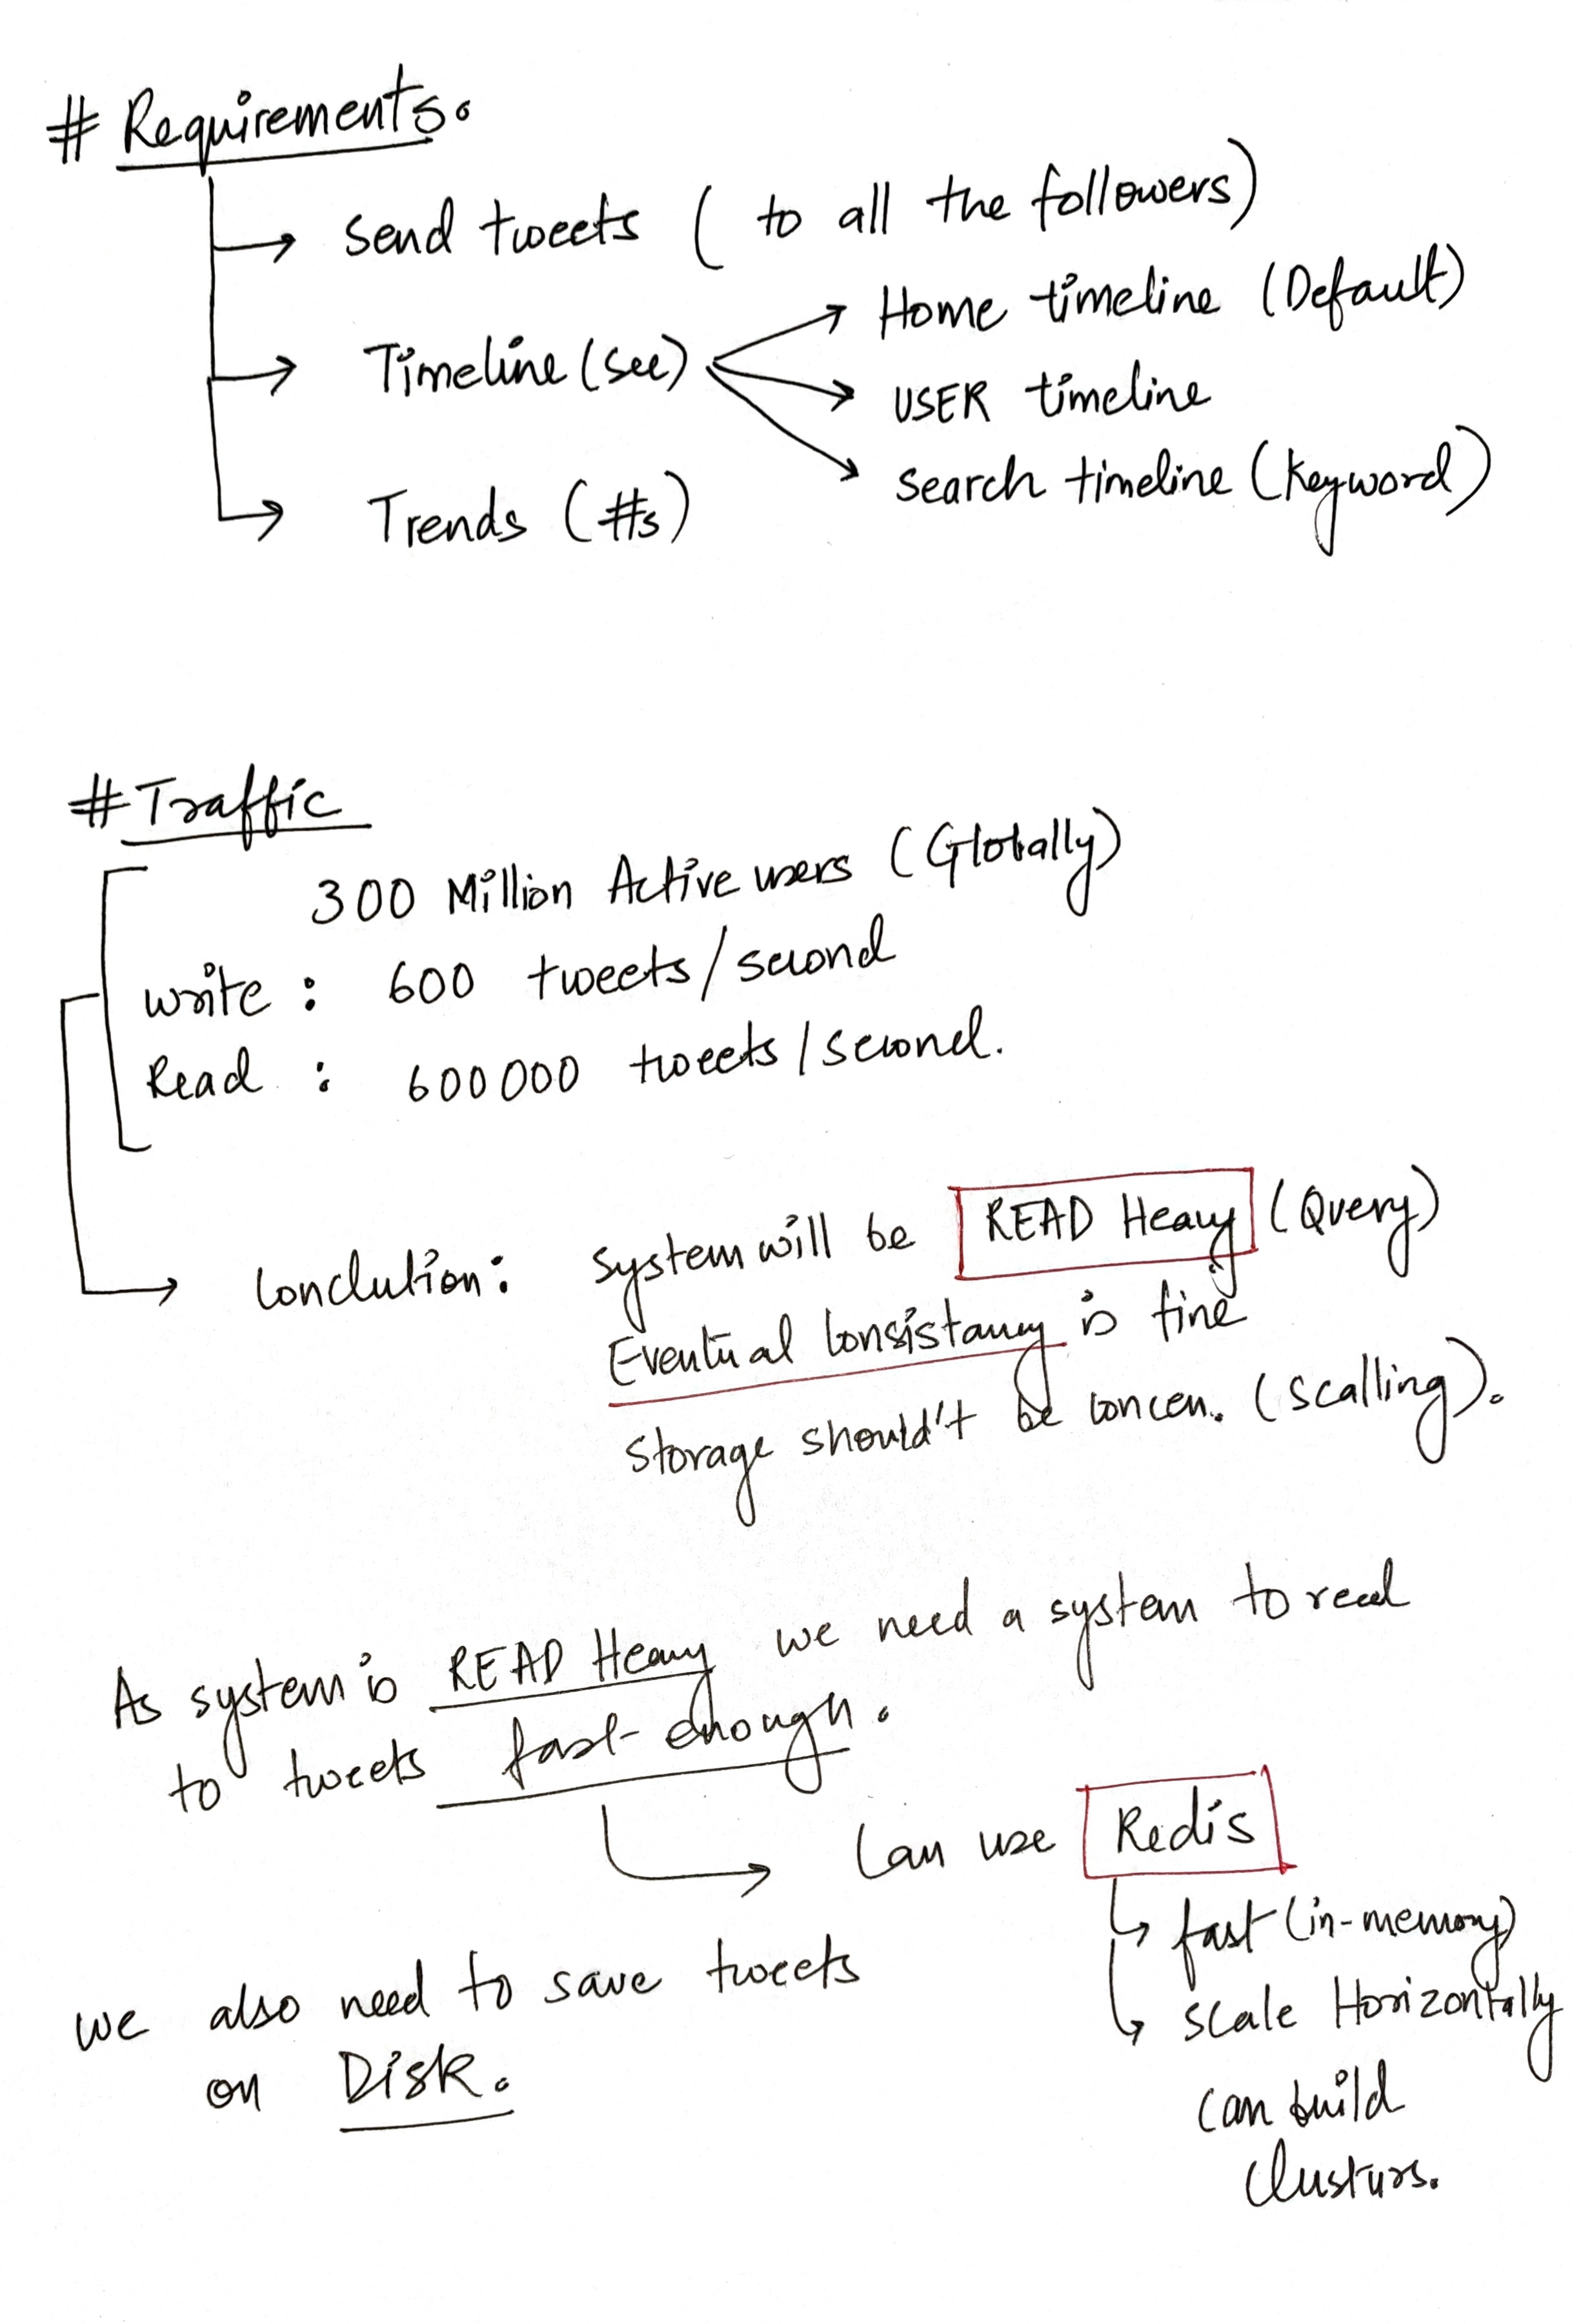 # Requirements.
Send tweets ( to all the followers)
Timeline (see)
Home timeline (Default)
USER timeline
Search timeline (Keyword)
Trends (#s)
# Traffic
300 Million Active users (Globally)
write : 600 tweets/second
Read : 600000 tweets/second.
Conclution: System will be READ Heavy (Query)
Eventual Consistancy is fine
Storage should't be concen. (Scalling).
As system is READ Heavy we need a system to read
to tweets fast enough.
Can use Redis
fast (in-memory)
scale Horizontally
can build
Clusturs.
we also need to save tweets
on Disk.